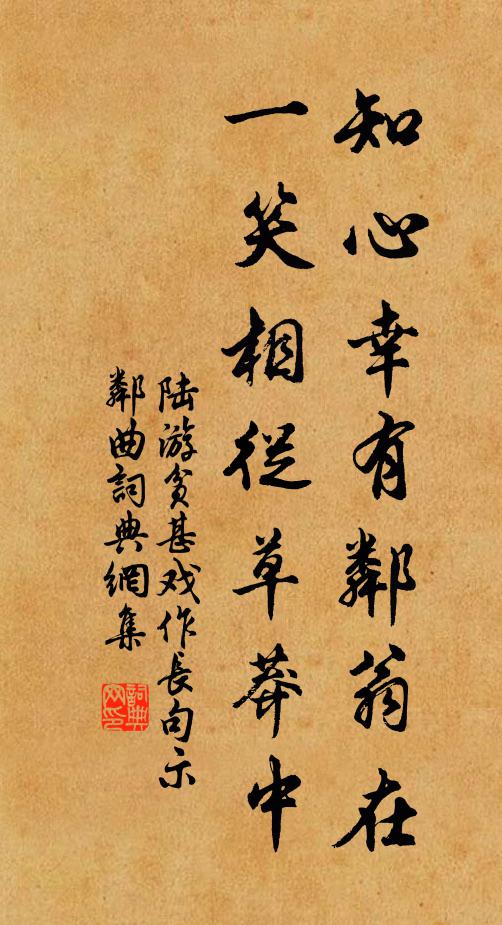 知心幸有鄰翁在
一笑相從草莽中
陸游貧甚戏作長句示
鄰曲詞典網集
詞典网印